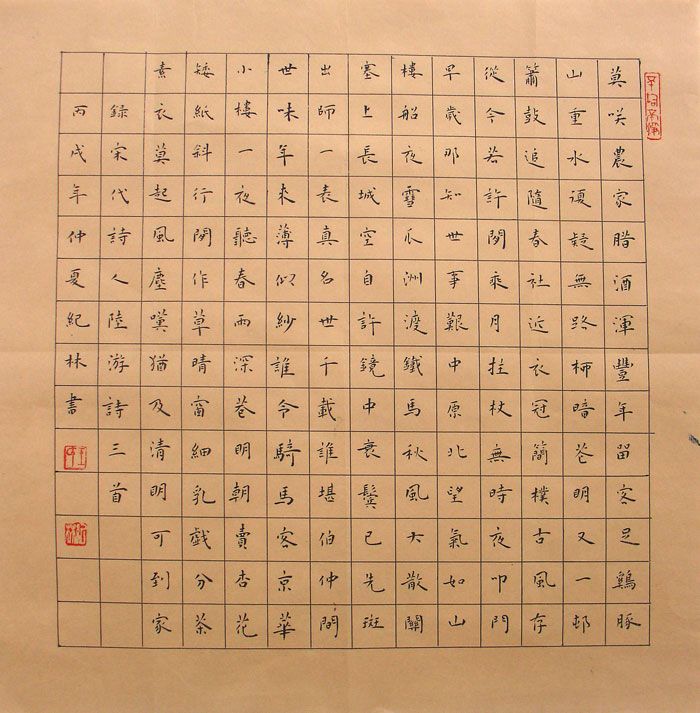 莫咲農家腊酒渾豐年留客足鷄豚
山重水複疑無路柳暗花明又一邨
簫鼓追隨春社近衣冠簡樸古風存
從今若許閑乘月拄杖無時夜叩門
早歲那知世事艱中原北望氣如山
樓船夜雪瓜洲渡鐵馬秋風大散關
塞上長城空自許鏡中衰鬢已先斑
出師一表真名世千載誰堪伯仲間
世味年來薄似紗誰令騎馬客京華
小樓一夜聽春雨深巷明朝賣杏花
矮紙斜行閑作草晴窗細乳戲分茶
素衣莫起風塵嘆猶及清明可到家
録宋代詩人陸游詩三首
丙戌年仲夏紀林書